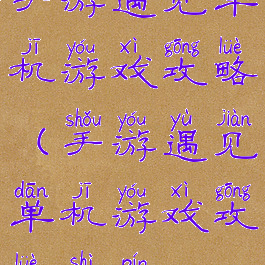 手游遇见单
jī yóu xì gōng lüè
机游戏攻略
shǒu yóu yù jiàn
（手游遇见
dān jī yóu xì gōng
单机游戏攻
lüè shì pín